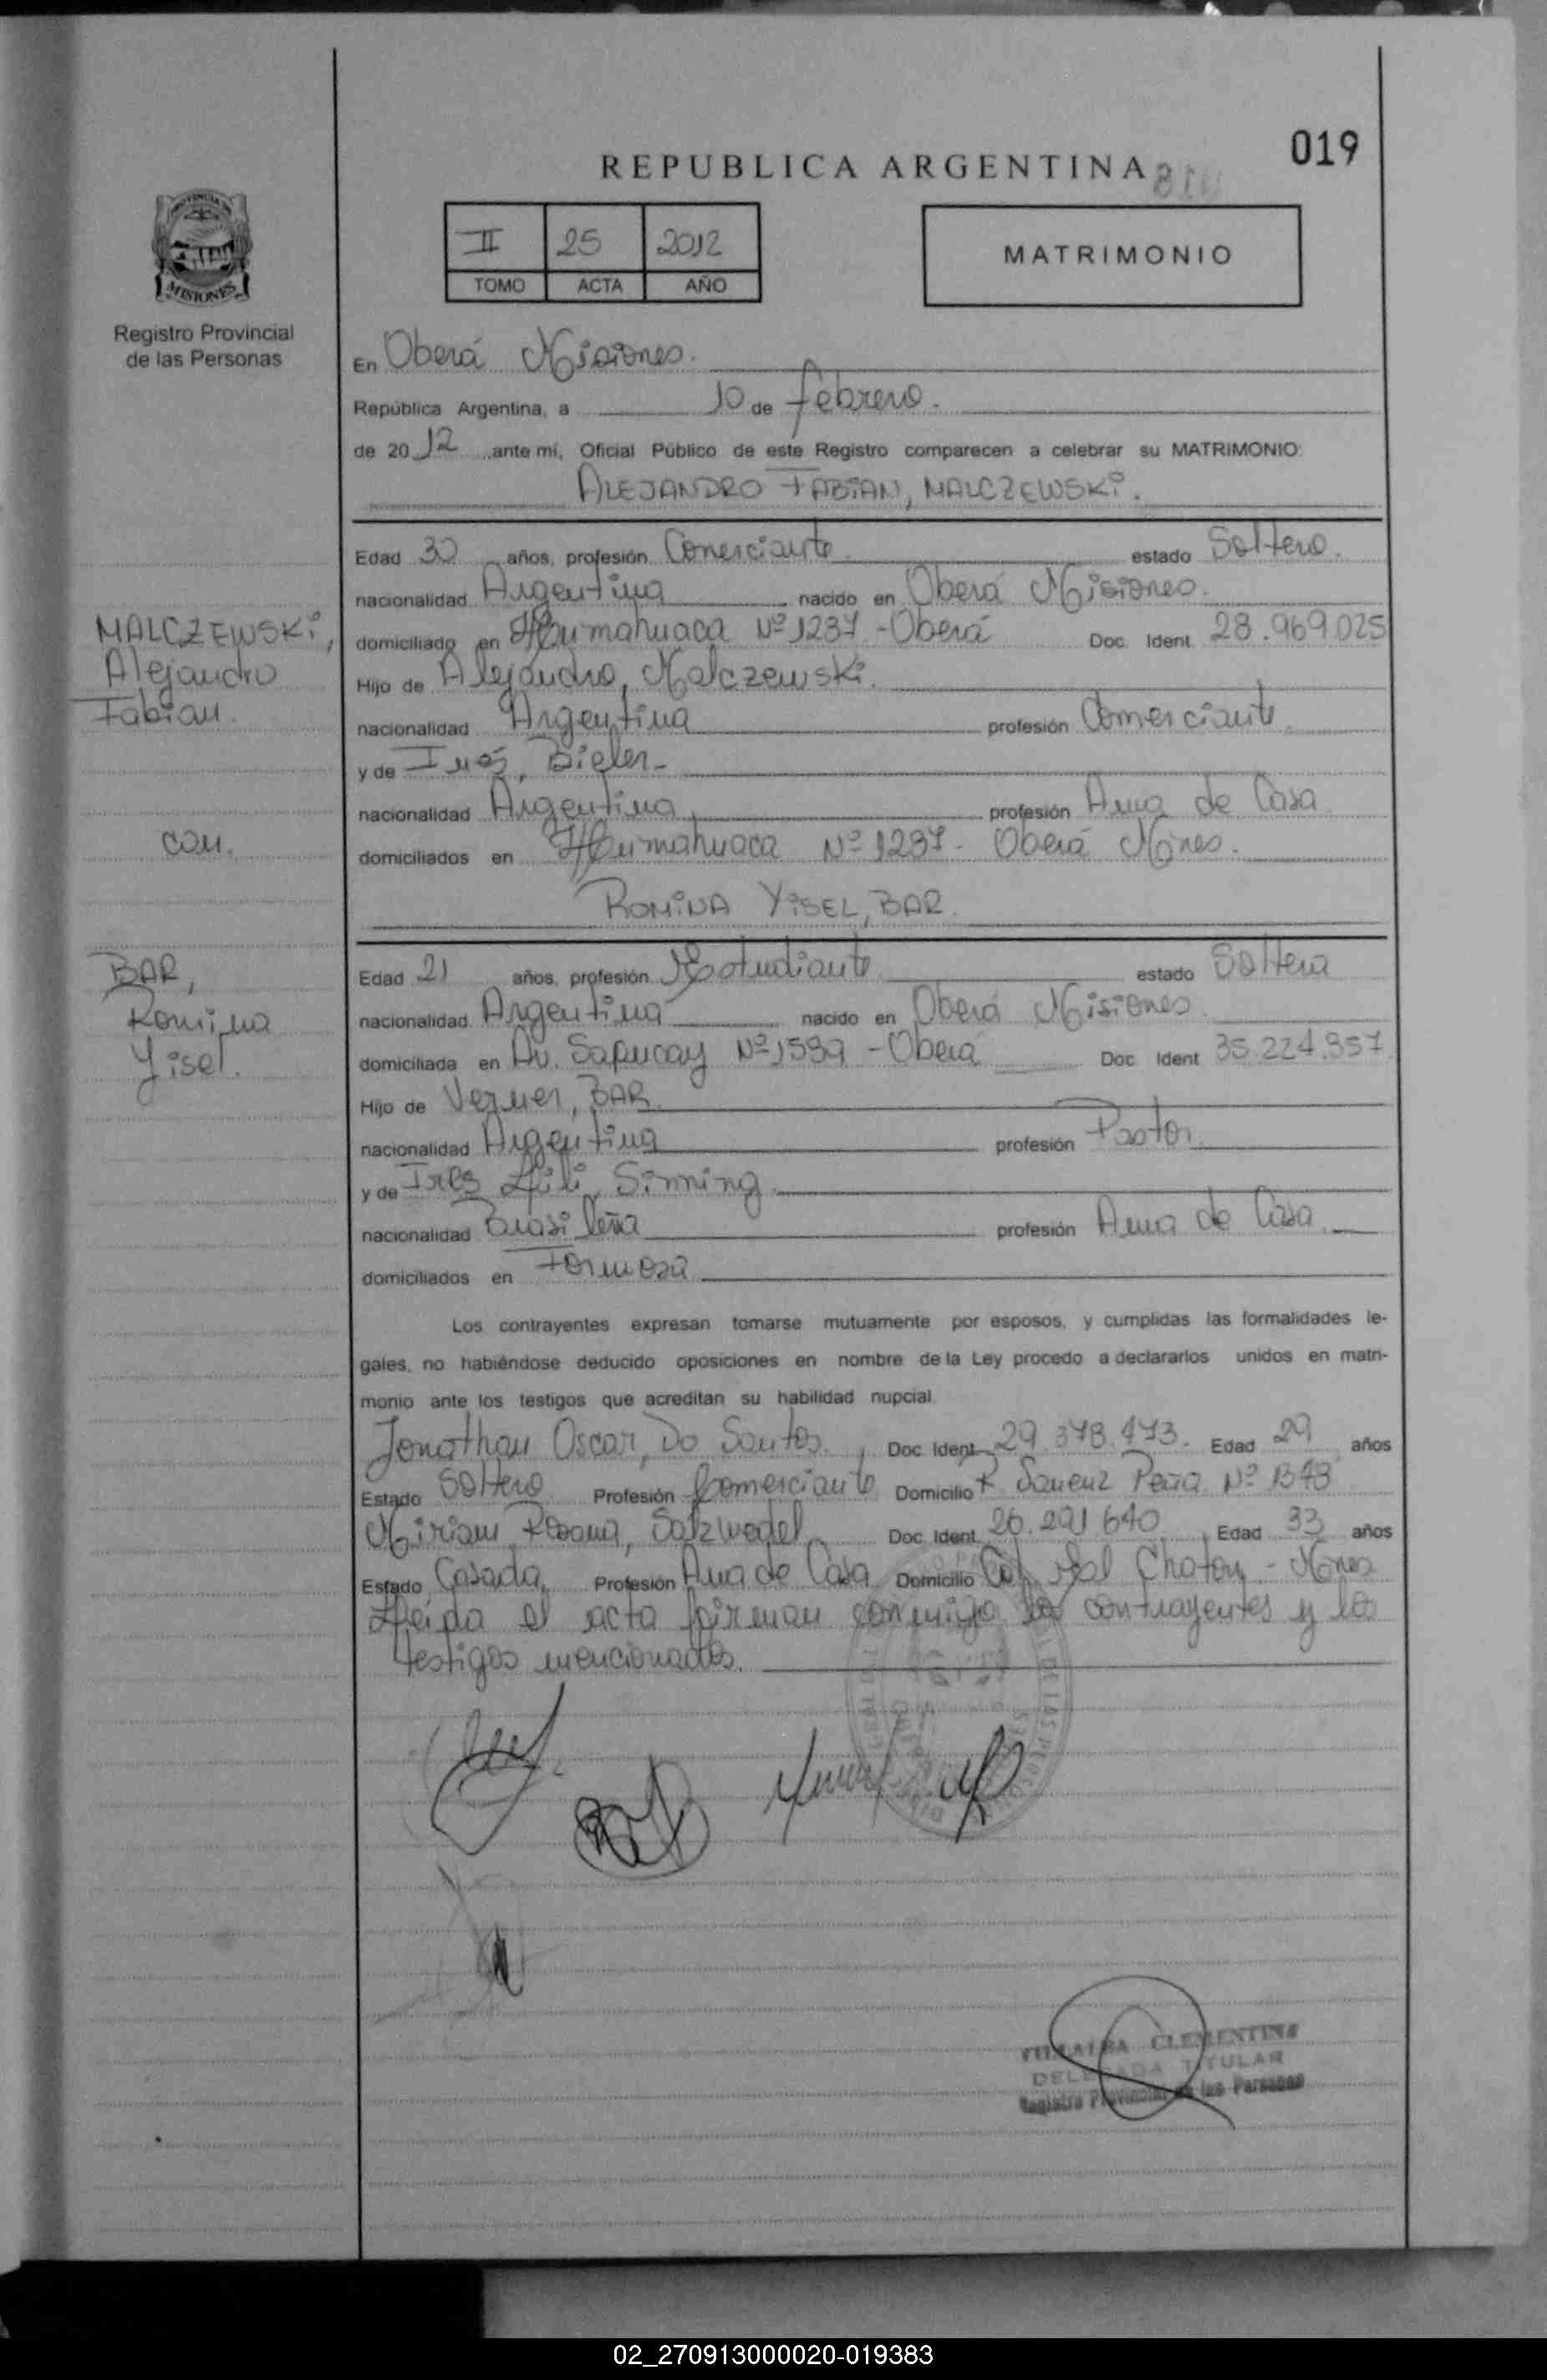 019
REPUBLICA ARGENTINA
II 25 2012
TOMO ACTA AÑO
MATRIMONIO
MISIONES
Registro Provincial
de las Personas
En Oberá Misiones.
República Argentina, a 10 de febrero.
de 2012 ante mi, Oficial Público de este Registro comparecen a celebrar su MATRIMONIO:
ALEJANDRO FABIAN, MALCZEWSKI.
Edad 30 años, profesión Comerciante estado Soltero.
nacionalidad Argentina nacido en Oberá Misiones.
domiciliado en Humahuaca Nº 1237 - Oberá Doc. Ident. 28.969.025
Hijo de Alejandro, Malczewski.
nacionalidad Argentina profesión Comerciante.
y de Inés, Bieler-
nacionalidad Argentina profesión Ama de Casa
domiciliados en Humahuaca Nº 1237- Oberá Mnes.
MALCZEWSKI,
Alejandro
Fabian.
con.
BAR,
Romina
Yisel.
ROMINA YISEL, BAR.
Edad 21 años, profesión Estudiante estado Soltera
nacionalidad Argentina nacido en Oberá Misiones
domiciliada en Av. Sapucay Nº 1539 - Oberá Doc. Ident. 35.224.357
Hijo de Verner, BAR.
nacionalidad Argentina profesión Pastor.
y de Lili, Sinning.
nacionalidad Brasileña profesión Ama de Casa.
domiciliados en Formosa
Los contrayentes expresan tomarse mutuamente por esposos, y cumplidas las formalidades le-
gales, no habiéndose deducido oposiciones en nombre de la Ley procedo a declararlos unidos en matri-
monio ante los testigos que acreditan su habilidad nupcial
Jonathan Oscar, Do Santos., Doc. Ident. 29.378.473. Edad 29 años
Estado Soltero Profesión Comerciante Domicilio R. Saenz Peña Nº 1343
Miriam Rosana, Salzwedel Doc. Ident. 26.291.640, Edad 33 años
Estado Casada, Profesión Ama de Casa Domicilio Col. - Mnes
Leida el acta firman conmigo los contrayentes y los
testigos mencionados.
CLEMENTINA
DELEGADA TITULAR
Registro Provincial de las Personas
02_270913000020-019383